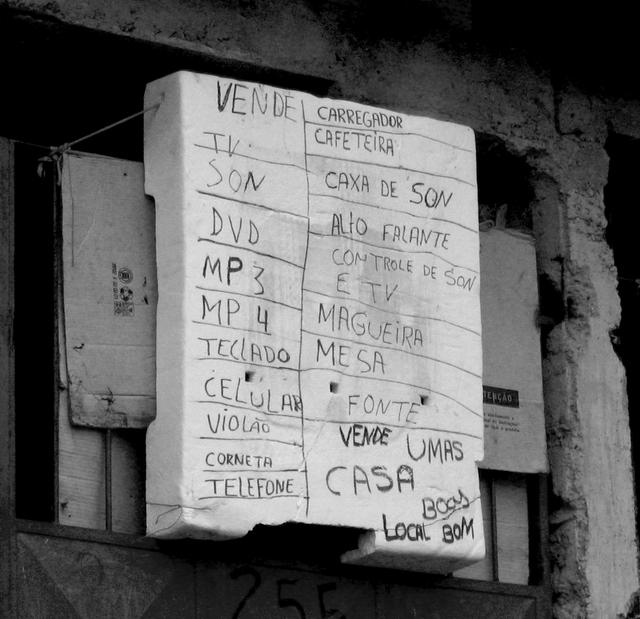 VENDE
TV
SON
DVD
MP3
MP4
TECLADO
CELULAR
VIOLÃO
CORNETA
TELEFONE
CARREGADOR
CAFETEIRA
CAXA DE SON
ALTO FALANTE
CONTROLE DE SON
E TV
MAGUEIRA
MESA
FONTE
VENDE UMAS
CASA
BOAS
LOCAL BOM
TENÇÃO
255